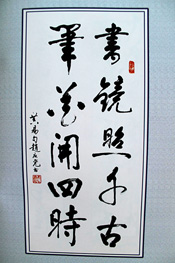 書鏡照千古
筆花開四時